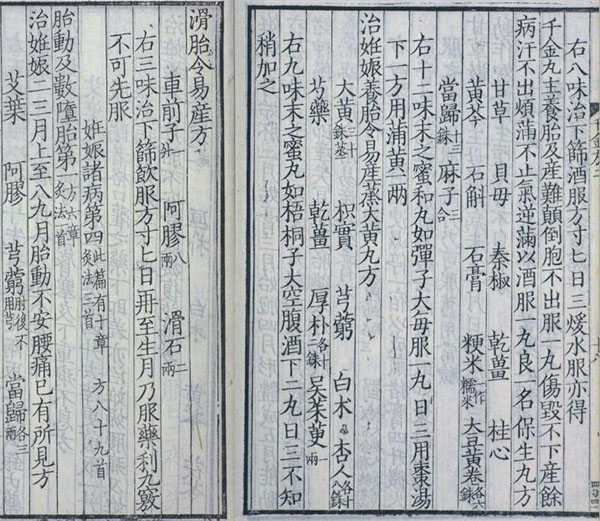 右八味治下篩酒服方寸匕日三煖水服亦得
千金丸主養胎及產難顛倒胞不出服一丸傷毀不下產餘
病汗不出煩滿不止氣逆滿以酒服一丸良一名保生丸方
甘草 貝母 秦椒 乾薑 桂心
黃芩 石斛 石膏 粳米一作糯米 大豆黃卷各六銖
當歸十三銖 麻子三合
右十二味末之蜜和丸如彈子大每服一丸日三用棗湯
下一方用蒲黃一兩
治姙娠養胎令易產蒸大黃丸方
大黃三十銖蒸 枳實 芎藭 白朮 杏人各十八銖
芍藥 乾薑 厚朴各十二銖 吳茱萸一兩
右九味末之蜜丸如梧桐子大空腹酒下二丸日三不知
稍加之
滑胎令易產方
車前子一升 阿膠八兩 滑石二兩
右三味治下篩飲服方寸匕日再至生月乃服藥利九竅
不可先服
姙娠諸病第四此篇有十章 方八十九首 灸法三首
胎動及數墮胎第 方六章 灸法一首
治姙娠二三月上至八九月胎動不安腰痛已有所見方
艾葉 阿膠 芎藭肘後不用芎 當歸各三兩